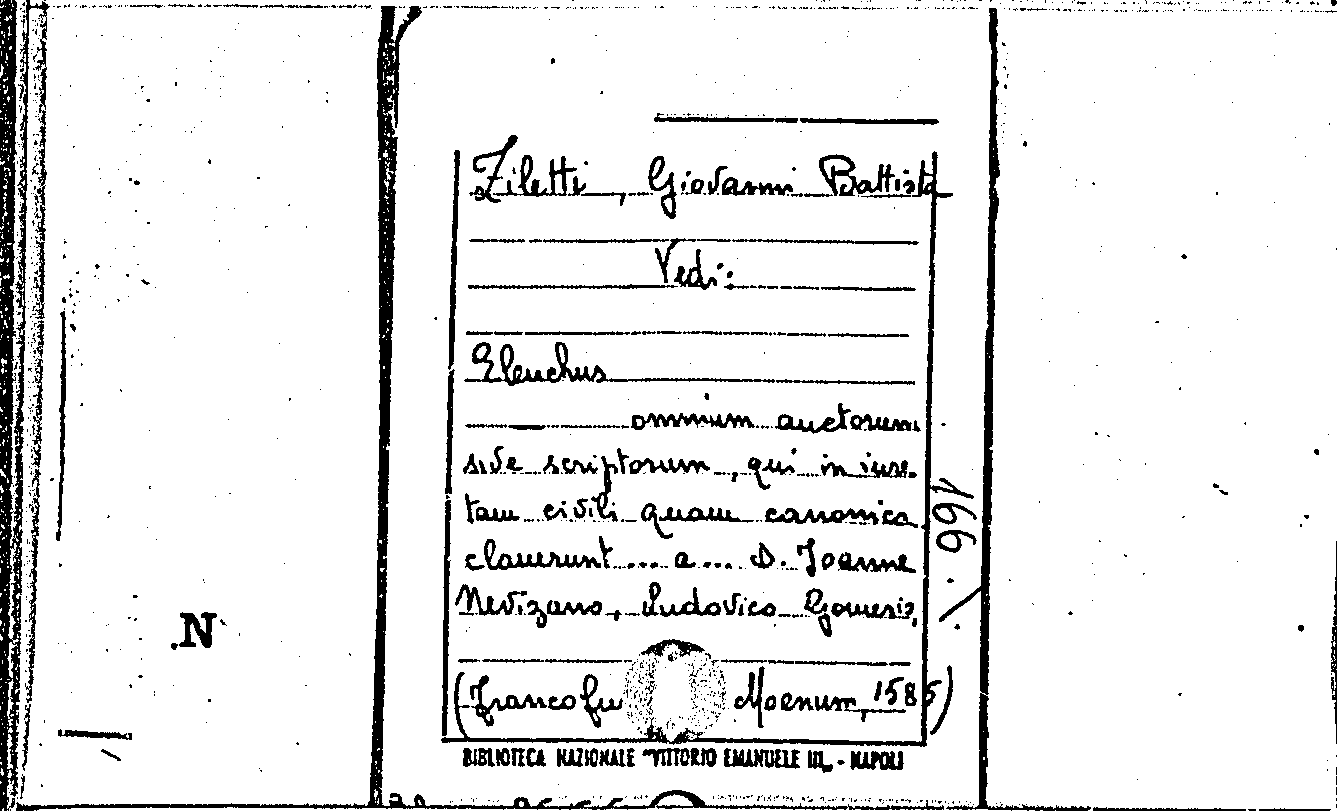 Ziletti, Giovanni Battista
Vedi:
Elenchus
omnium auctorum
sive scriptorum, qui in iure
tam civili quam canonico
claruerunt... a... D. Joanne
Nevizano, Ludovico Gomesio,
(Francofu Moenum, 1585)
BIBLIOTECA NAZIONALE "VITTORIO EMANUELE III" - NAPOLI
166
.N